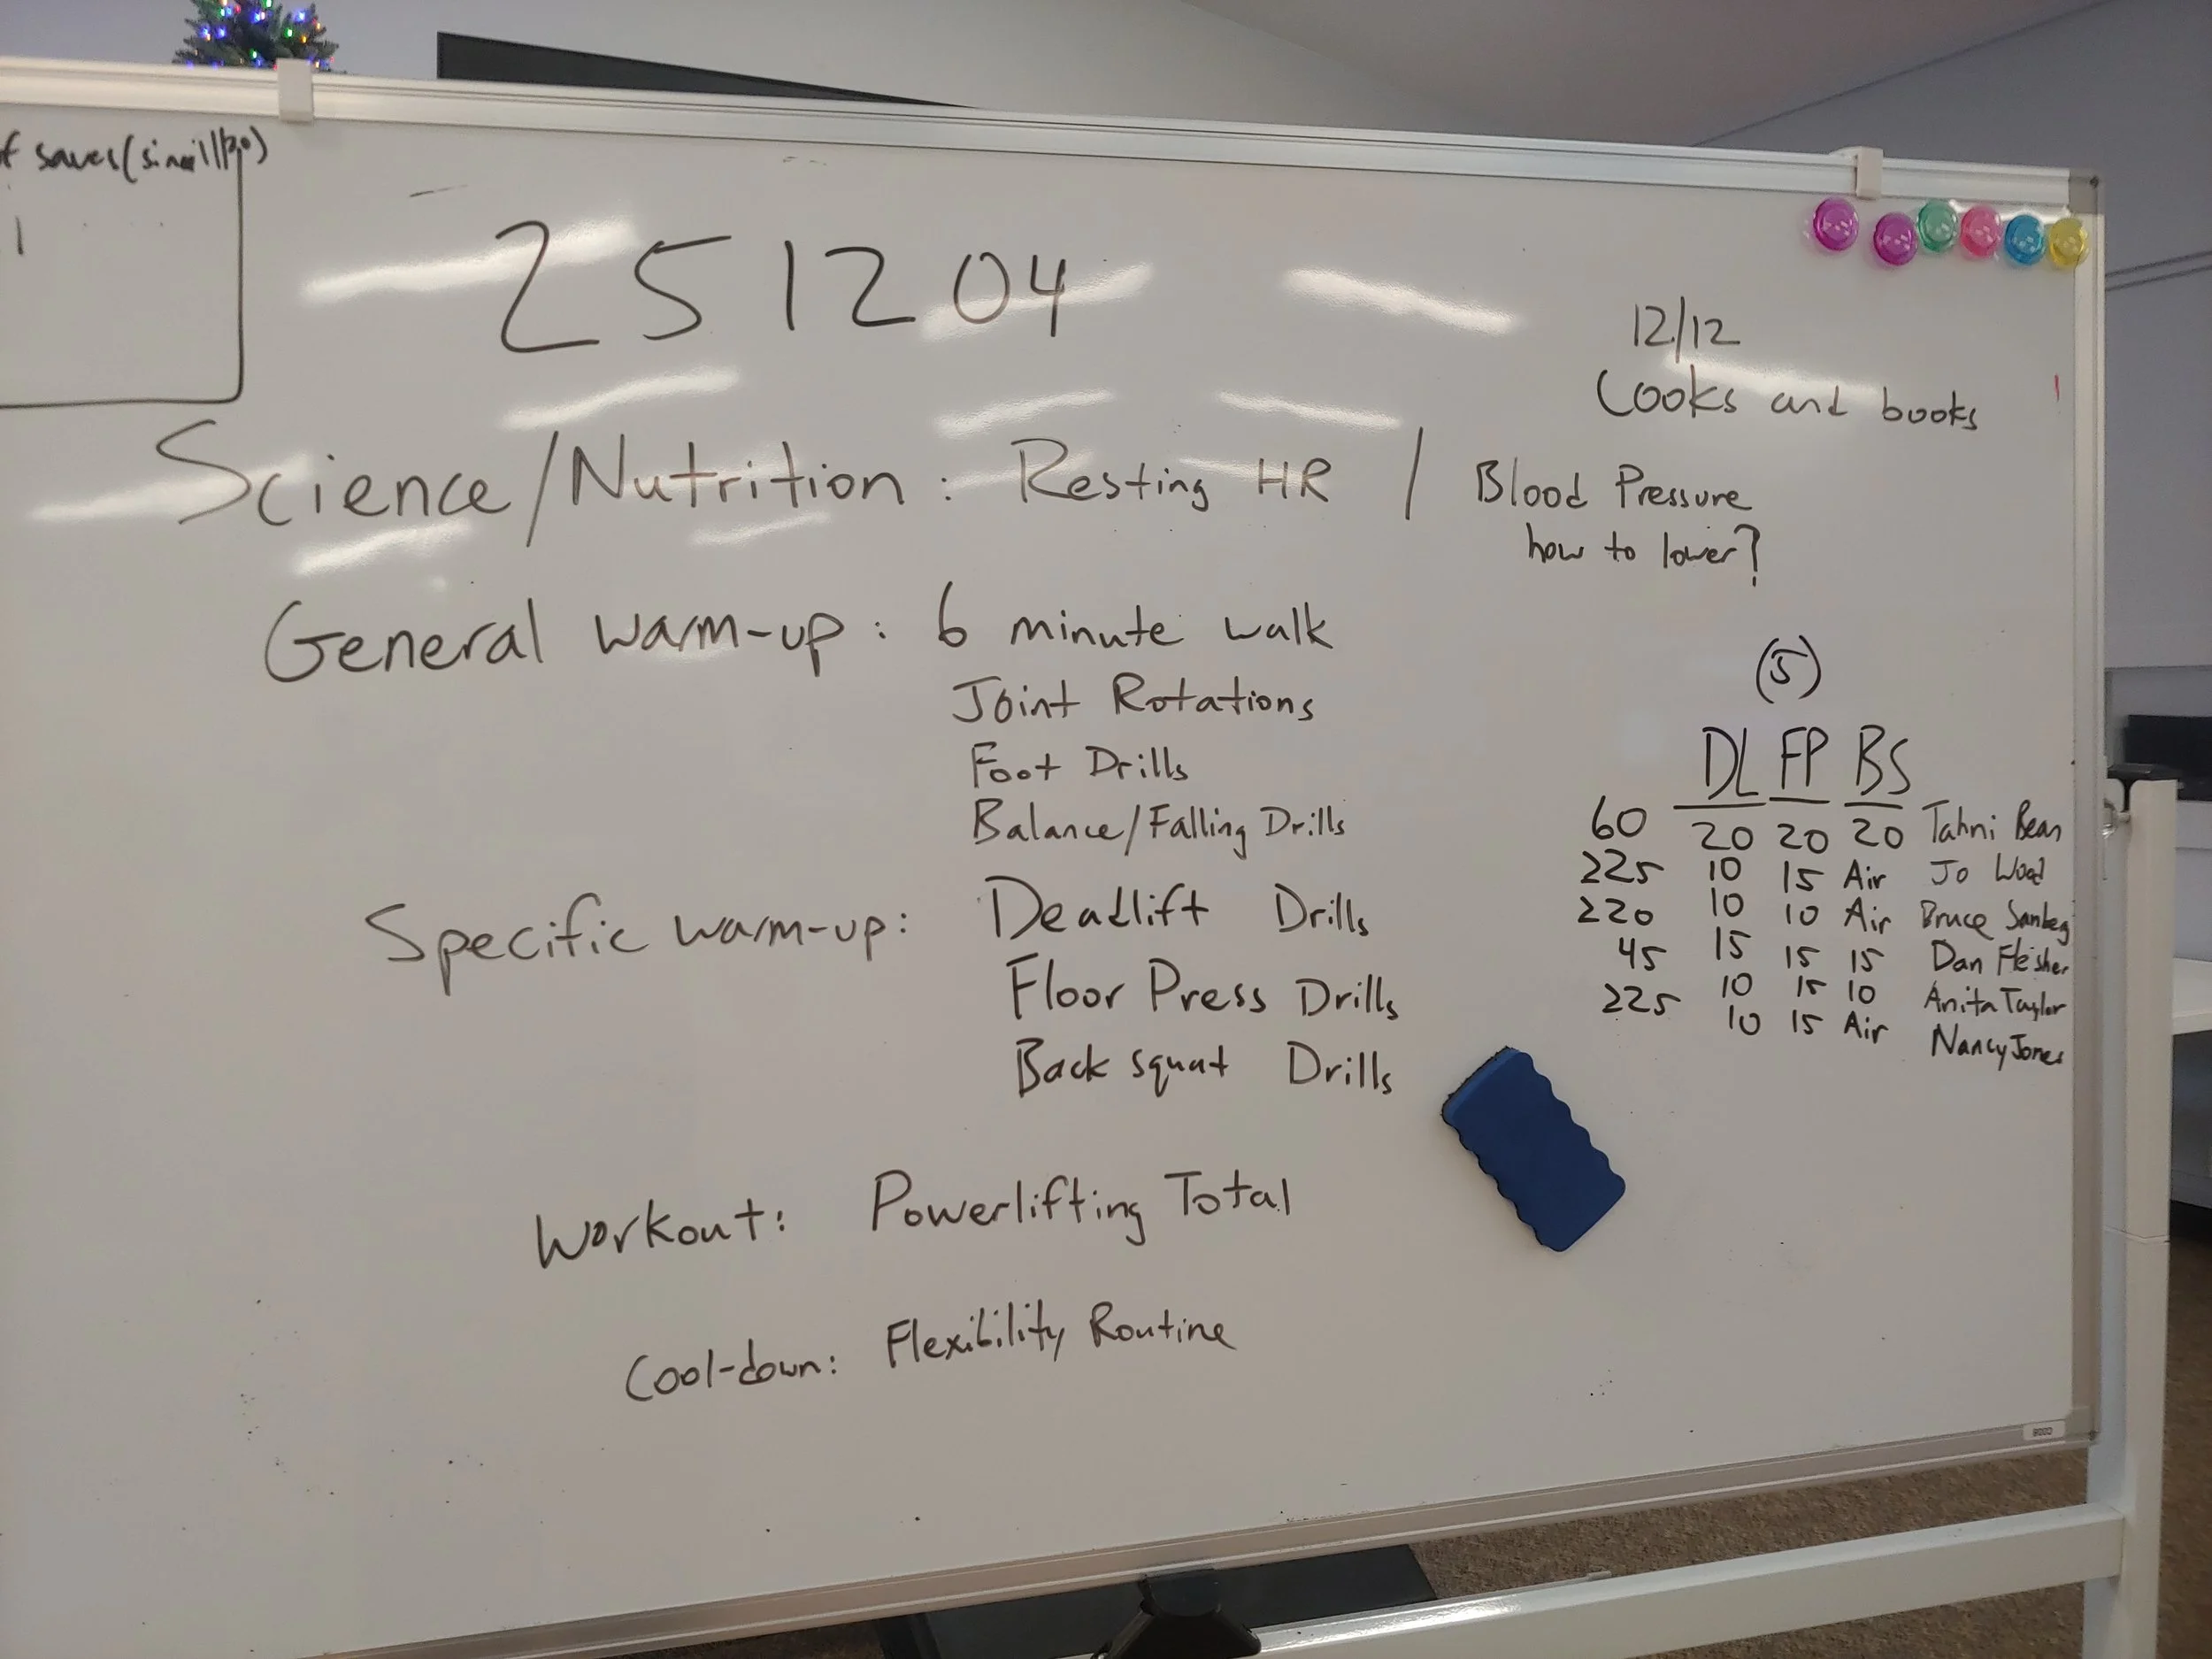 251204
12/12
Cooks and books
Science/Nutrition: Resting HR / Blood Pressure
how to lower?
General warm-up: 6 minute walk
Joint Rotations
Foot Drills
Balance/Falling Drills
Specific warm-up: Deadlift Drills
Floor Press Drills
Back squat Drills
Workout: Powerlifting Total
Cool-down: Flexibility Routine
(5)
DL FP BS
60 20 20 20 Tahni Bean
225 10 15 Air Jo Wood
220 10 10 Air Bruce
45 15 15 15 Dan
225 10 15 10 Anita Taylor
10 15 Air Nancy Jones